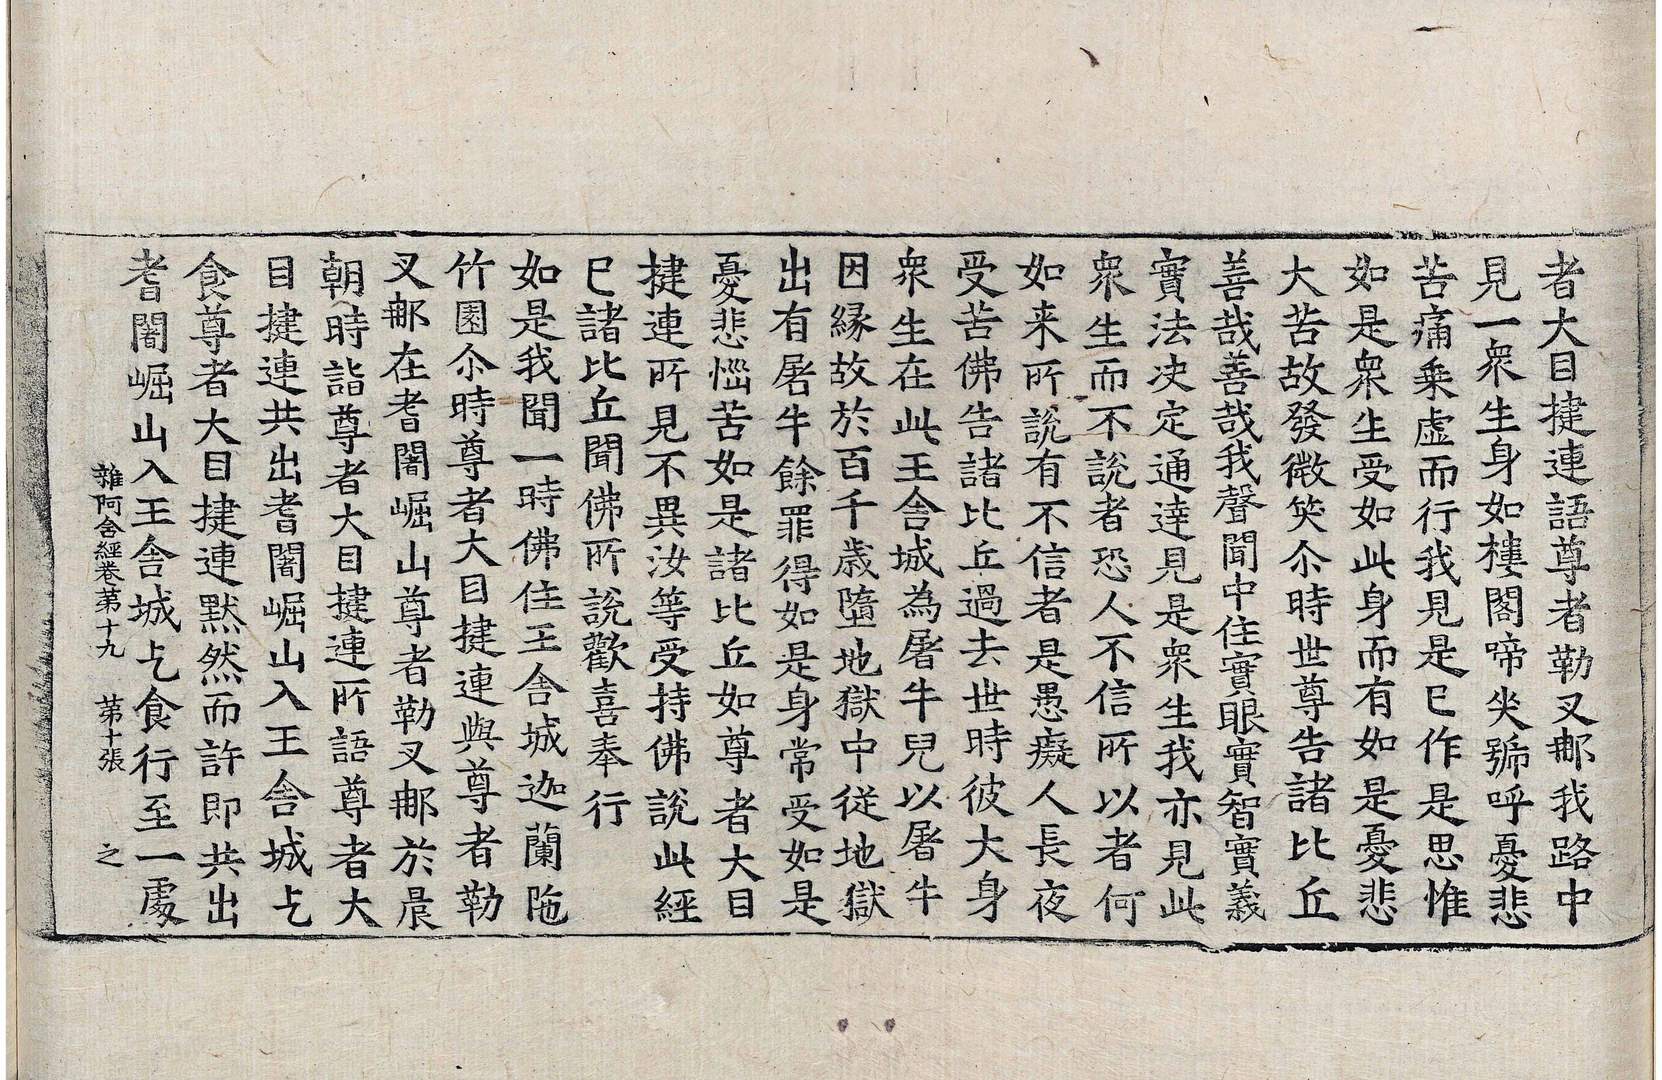 者大目揵連語尊者勒叉𨚗我路中
見一衆生身如樓閣啼㘸號呼憂悲
苦痛乗虛而行我見是已作是思惟
如是衆生受如此身而有如是憂悲
大苦故發微笑尒時世尊告諸比丘
善哉善哉我聲聞中住實眼實智實義
實法决定通達見是衆生我亦見此
衆生而不說者恐人不信所以者何
如来所說有不信者是愚癡人長夜
受苦佛告諸比丘過去世時彼大身
衆生在此王舍城為屠牛兒以屠牛
因縁故於百千歳墮地獄中從地獄
出有屠牛餘罪得如是身常受如是
憂悲惱苦如是諸比丘如尊者大目
揵連所見不異汝等受持佛說此經
已諸比丘聞佛所說歡喜奉行
如是我聞一時佛住王舍城迦蘭陁
竹園尒時尊者大目揵連與尊者勒
叉𨚗在耆闍崛山尊者勒叉𨚗於晨
朝時詣尊者大目揵連所語尊者大
目揵連共出耆闍崛山入王舍城乞
食尊者大目揵連默然而許即共出
耆闍崛山入王舍城乞食行至一處
雜阿含經卷第十九　第十張　之